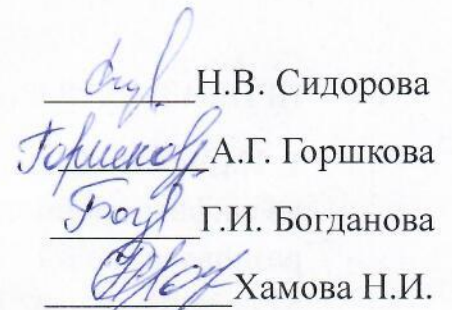 Н.В. Сидорова
А.Г. Горшкова
Г.И. Богданова
Хамова Н.И.